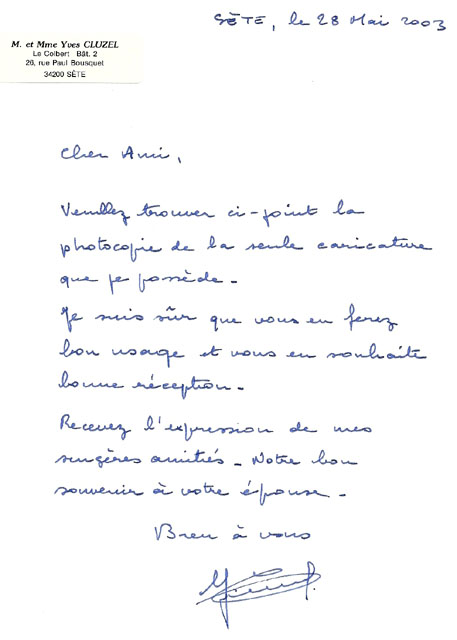 SÈTE, le 28 Mai 2003
M. et Mme Yves CLUZEL
Le Colbert Bât. 2
26, rue Paul Bousquet
34200 SÈTE
Cher Ami,
Veuillez trouver ci-joint la
photocopie de la seule caricature
que je possède -
Je suis sûr que vous en ferez
bon usage et vous en souhaite
bonne réception -
Recevez l'expression de mes
singères amitiés - Notre bon
souvenir à votre épouse -
Bien à vous